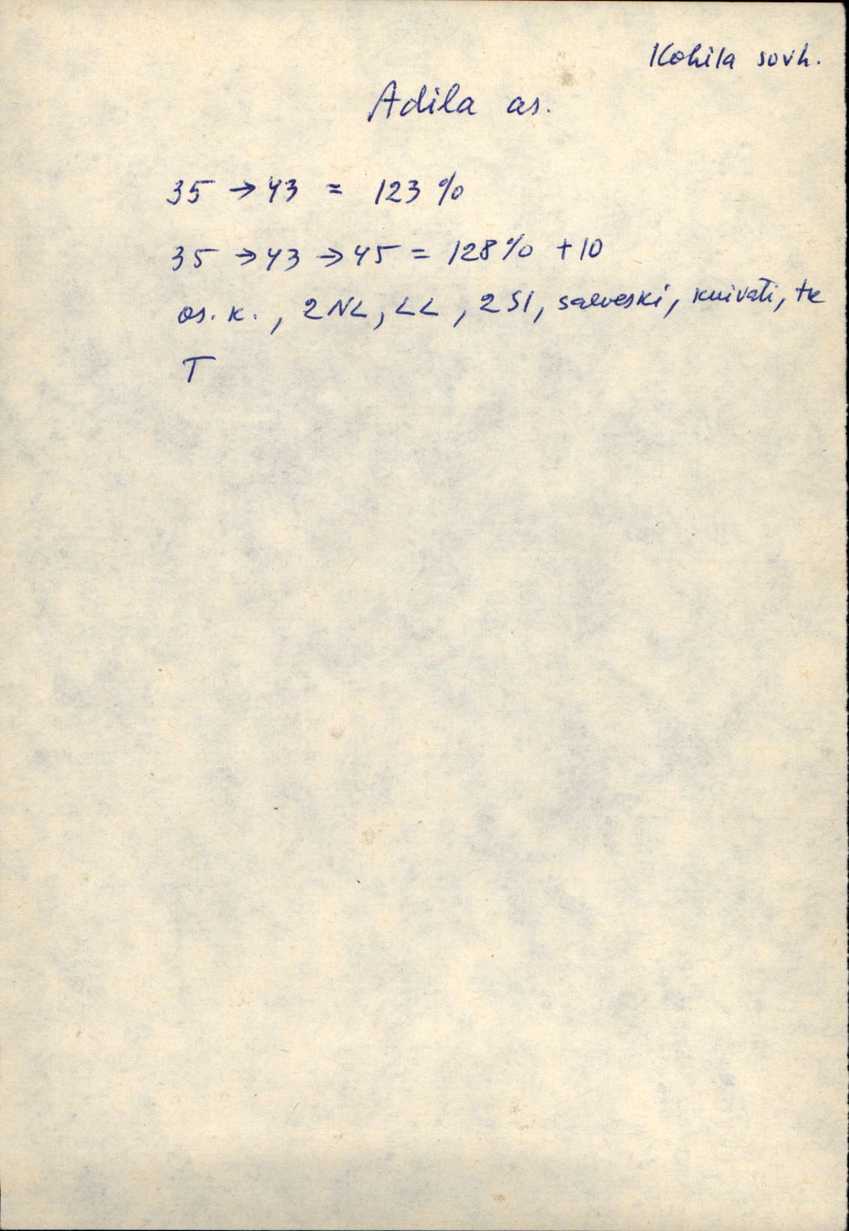 Kohila sovh.
Adila as.
35 → 43 = 123 %
35 → 43 → 45 = 128 % + 10
as. k., 2NL, LL, 2SI, saeveski, kuivati, tk
T